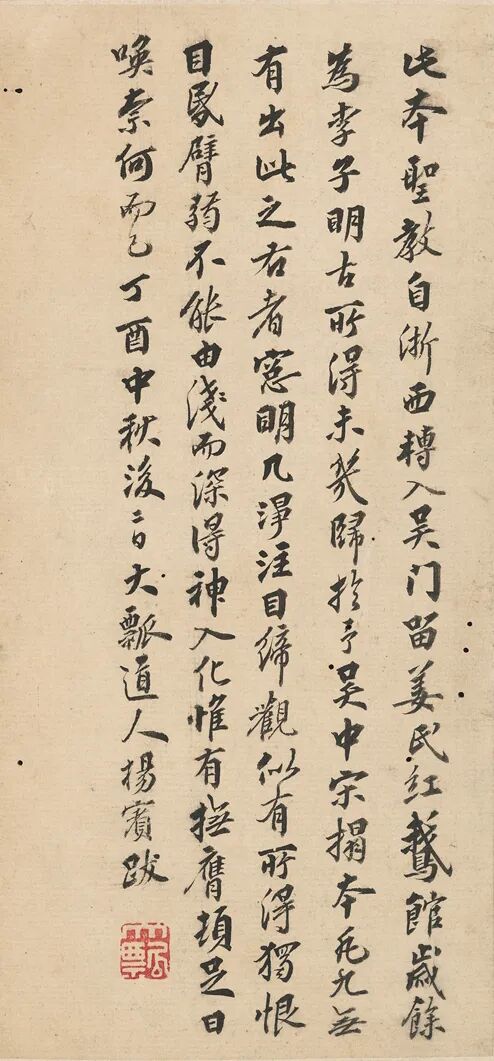 此本聖教自浙西轉入吴门留姜氏红鵝館歲餘
為李子明古所得未幾歸於予吴中宋搨本凡九無
有出此之右者窓明几淨注目締觀似有所得獨恨
目昏臂弱不能由淺而深得神入化惟有撫膺頓足日
喚柰何而已丁酉中秋後二日大瓢道人楊賓跋